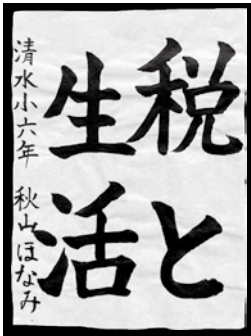 税と
生活
清水小六年 秋山ほなみ